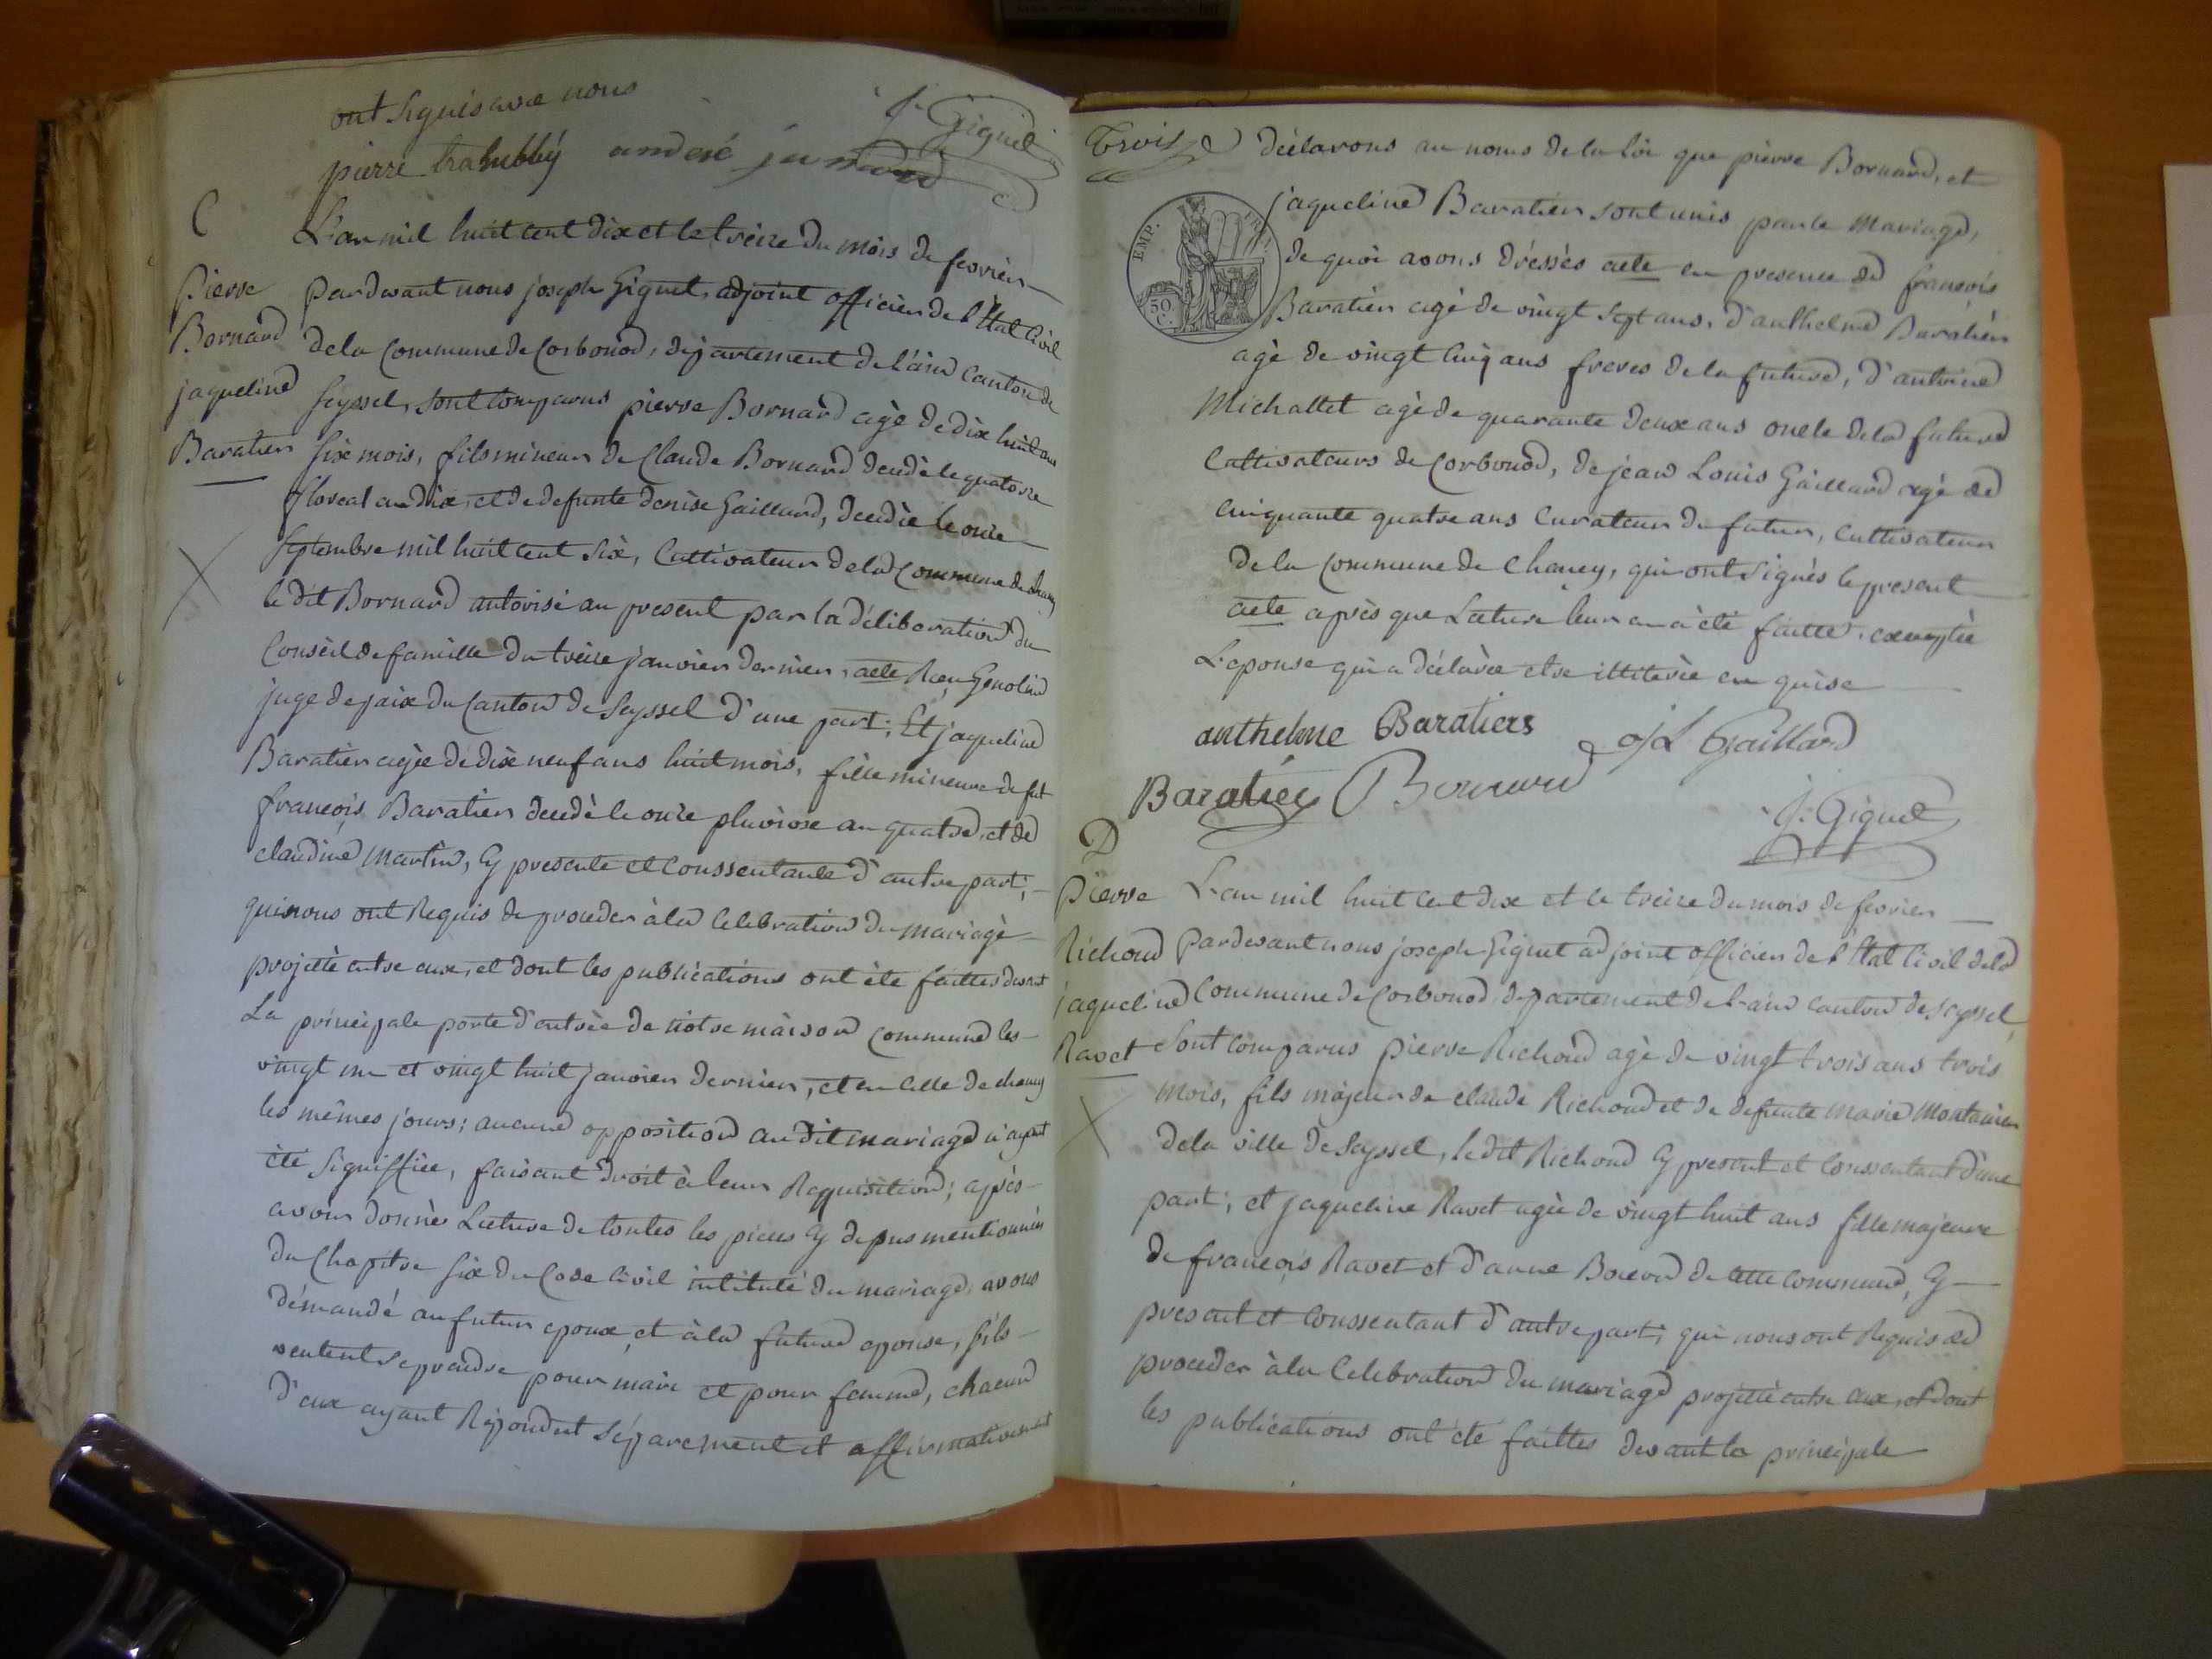 ont signés avec nous
pierre andré J. Giguet
C
L'an mil huit cent dix et le treize du mois de fevrier
Pierre
Bornard
jaqueline
Baratier
pardevant nous joseph Giguet, adjoint officier de l'Etat Civil
de la Commune de Corbonod, département de l'ain Canton de
Seyssel, sont comparus pierre Bornard agè de dix huit ans
six mois, fils mineur de Claude Bornard decedè le quatorze
floreal an dix, et de defunte denise Gaillard, decedèe le onze
septembre mil huit cent six, Cultivateur de la Commune de chaney
le dit Bornard autorisé au present par la déliberation du
Conseil de famille du treize janvier dernier, acte Reçu Genolin
juge de paix du Canton de Seyssel d'une part; Et jaqueline
Baratier agèe de dix neuf ans huit mois, fille mineure de fut
françois Baratier decedè le onze pluviose an quatre, et de
claudine martin, Cy presente et Conssentante d'autre part;
qui nous ont Requis de proceder à la Celebration du mariagè
projettè entre eux, et dont les publications ont ète faittes devant
La principale porte d'entrèe de nôtre màison commune les
vingt un et vingt huit janvier dernier, et en celle de chaney
les mêmes jours; aucune opposition au dit mariage n'ayant
ète signiffiée, faisant droit à leur Requisition; après
avoir donnès Lecture de toutes les pieces Cy depus mentionnées
du Chapitre six du Code Civil intitulé du mariage, avons
démandé au futur epoux, et à la future epouse, s'ils
veulent se prendre pour mari et pour femme, chacun
d'eux ayant Répondut séparement et affirmativement
Trois
déclarons au noms de la loi que pièrre Bornard, et
EMP. FR.
50 C.
jaqueline Baratier sont unis par le Mariage,
de quoi avons dréssés acte en presence de françois
Baratier agé de vingt sept ans, d'anthelme Baratier
agè de vingt Cinq ans freres de la future, d'antoine
Michallet agè de quarante deux ans oncle de la future
Cultivateurs de Corbonod, de jean Louis Gaillard agé de
Cinquante quatre ans Curateur du futur, Cultivateur
de la Commune de Chaney, qui ont signès le present
acte après que Lecture leur en à ètè faitte, exceptèe
L'epouse qui a déclarée etre illiterèe en quise
anthelme Baratiers J L Gaillard
Baratier Bornard
J. Giguet
D
Pierre
Richond
jaqueline
Ravet
L'an mil huit cent dix et le treize du mois de fevrier
Pardevant nous joseph Giguet adjoint officier de l'Etat Civil de la
Commune de Corbonod, departement de l'ain canton de Seyssel
sont comparus pierre Richond agè de vingt trois ans trois
mois, fils majeur de claude Richond et de defunte marie Montanier
de la ville de Seyssel, le dit Richond Cy present et Conssentant d'une
part; et jaqueline Ravet agèe de vingt huit ans fille majeure
de françois Ravet et d'anne de cette commune, Cy
present et Conssentant d'autre part; qui nous ont Requis de
proceder à la Celebration du mariage projettè entre eux, et dont
les publications ont ète faittes devant la principale